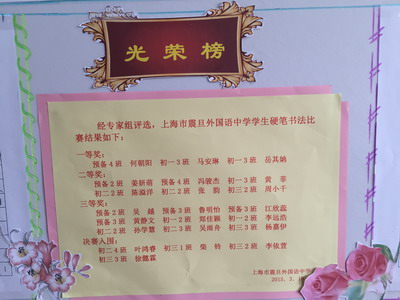 光荣榜
经专家组评选，上海市震旦外国语中学学生硬笔书法比
赛结果如下：
一等奖：
预备4班 何朝阳 初一3班 马安琳 初一3班 岳其炳
二等奖：
预备2班 姜妍萌 预备4班 冯骏杰 初一3班 黄菲
初二2班 陈溢洋 初二2班 张韵 初三2班 周小千
三等奖：
预备2班 吴越 预备3班 鲁明怡 预备3班 江欣蕊
预备3班 黄静文 初一2班 郑佳颖 初一2班 李远浩
初二2班 孙学慧 初二3班 吴雨舟 初三3班 杨嘉伊
决赛入围：
初二4班 叶鸿睿 初三1班 柴铃 初三2班 李依萱
初三3班 徐懿霖
上海市震旦外国语中学
2015.3.